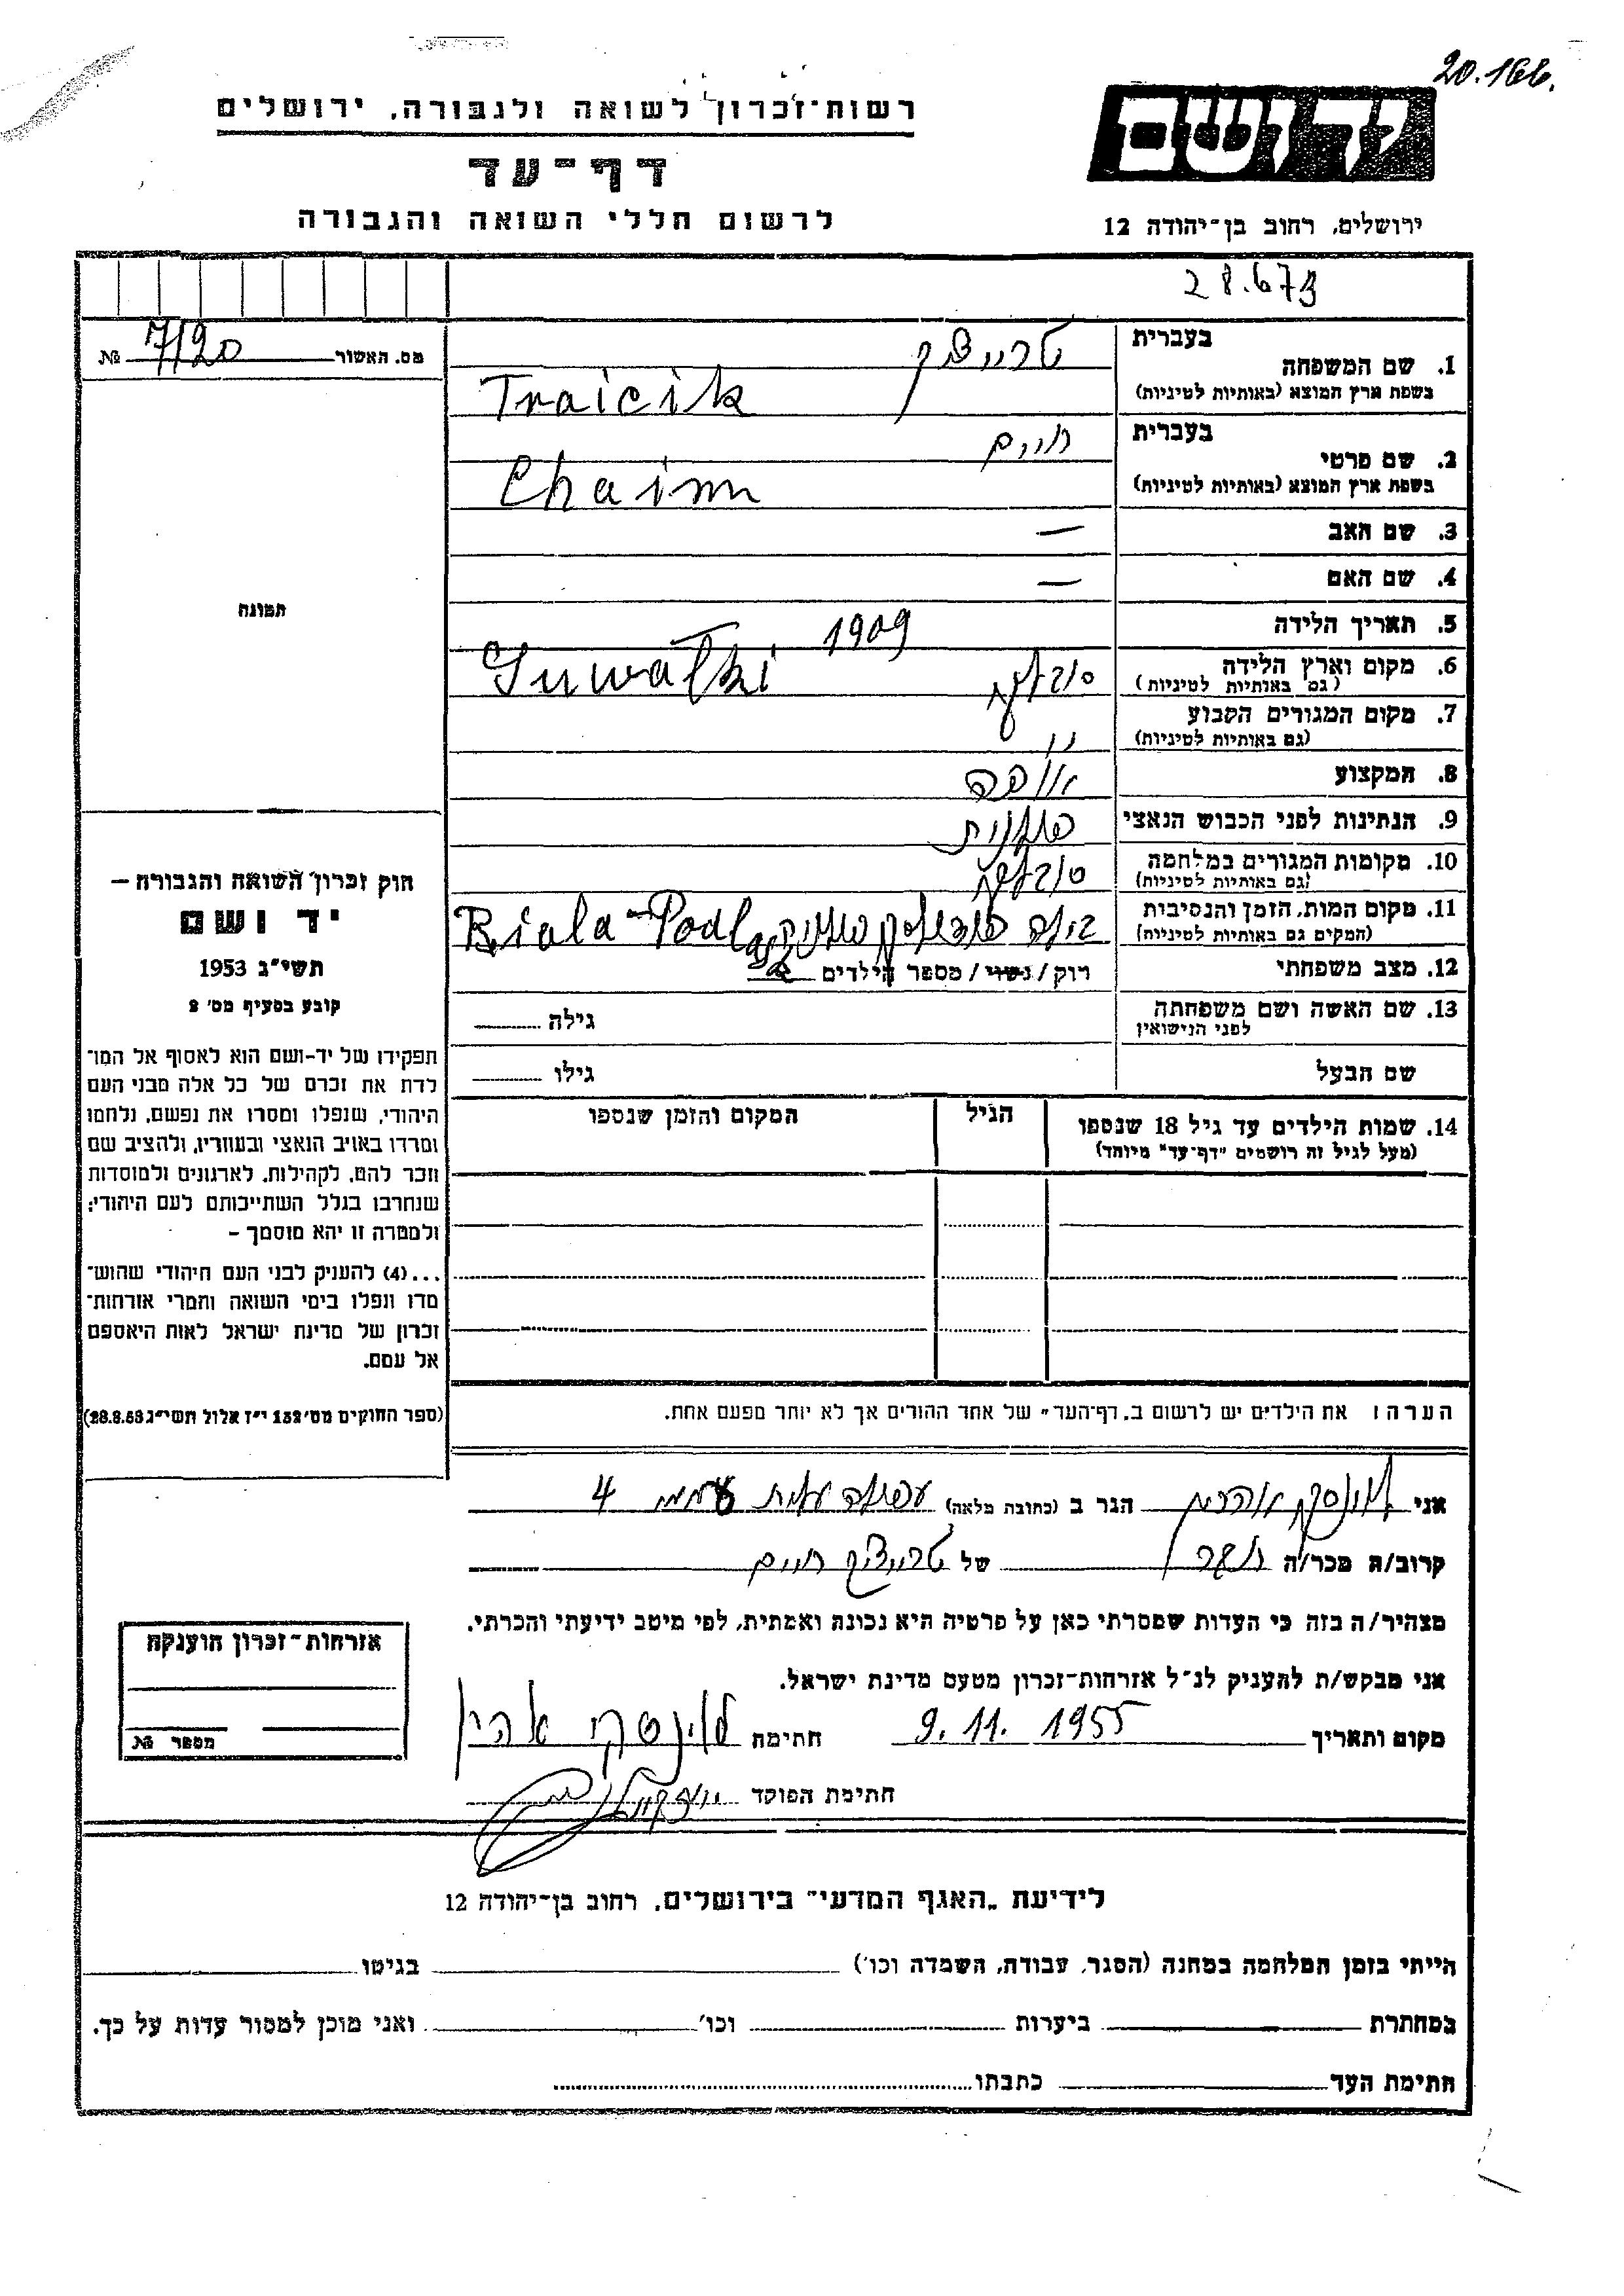 20.166.
ידושם
רשות־זכרון לשואה ולגבורה, ירושלים
דף־עד
לרשום חללי השואה והגבורה
ירושלים, רחוב בן־יהודה 12
28.673
מס. האשור 7/20 №
תמונה
1. שם המשפחה
בעברית טרייציק
בשפת ארץ המוצא (באותיות לטיניות) Traicik
2. שם פרטי
בעברית חיים
בשפת ארץ המוצא (באותיות לטיניות) Chaim
3. שם האב —
4. שם האם —
5. תאריך הלידה 1909
6. מקום וארץ הלידה סובלקי Suwałki
(גם באותיות לטיניות)
7. מקום המגורים הקבוע ״
(גם באותיות לטיניות)
8. המקצוע
9. הנתינות לפני הכבוש הנאצי פולנית
10. מקומות המגורים במלחמה סובלקי
(גם באותיות לטיניות)
11. מקום המות, הזמן והנסיבות ביאלה Biala-Podlaska
(המקים גם באותיות לטיניות)
12. מצב משפחתי רוק/נשוי/מספר הילדים
13. שם האשה ושם משפחתה גילה
לפני הנישואין
שם הבעל גילו
14. שמות הילדים עד גיל 18 שנספו הגיל המקום והזמן שנספו
(מעל לגיל זה רושמים "דף־עד" מיוחד)
הערה: את הילדים יש לרשום ב„דף־העד" של אחד ההורים אך לא יותר מפעם אחת.
חוק זכרון השואה והגבורה —
יד ושם
תשי״ג 1953
קובע בסעיף מס׳ 2
תפקידו של יד-ושם הוא לאסוף אל המו־
לדת את זכרם של כל אלה מבני העם
היהודי, שנפלו ומסרו את נפשם, נלחמו
ומרדו באויב הנאצי ובעוזריו, ולהציב שם
וזכר להם, לקהילות, לארגונים ולמוסדות
שנחרבו בגלל השתייכותם לעם היהודי;
ולמטרה זו יהא מוסמך –
...(4) להעניק לבני העם היהודי שהוש־
מדו ונפלו בימי השואה והמרי אזרחות־
זכרון של מדינת ישראל לאות היאספם
אל עמם.
(ספר החוקים מס׳ 132 י״ז אלול תשי״ג 28.8.53)
אני לוינסקי אהרון הגר ב (כתובת מלאה) עפולה עלית 4
קרוב/ה מכר/ה חבר של טרייציק חיים
מצהיר/ה בזה כי העדות שמסרתי כאן על פרטיה היא נכונה ואמתית, לפי מיטב ידיעתי והכרתי.
אני מבקש/ת להעניק לנ״ל אזרחות־זכרון מטעם מדינת ישראל.
מקום ותאריך 9.11.1955 חתימת
חתימת הפוקד
אזרחות־זכרון הוענקה
מספר №
לידיעת „האגף המדעי" בירושלים, רחוב בן־יהודה 12
הייתי בזמן המלחמה במחנה (הסגר, עבודה, השמדה וכו׳) בגיטו
במחתרת ביערות וכו׳ ואני מוכן למסור עדות על כך.
חתימת העד כתבתו